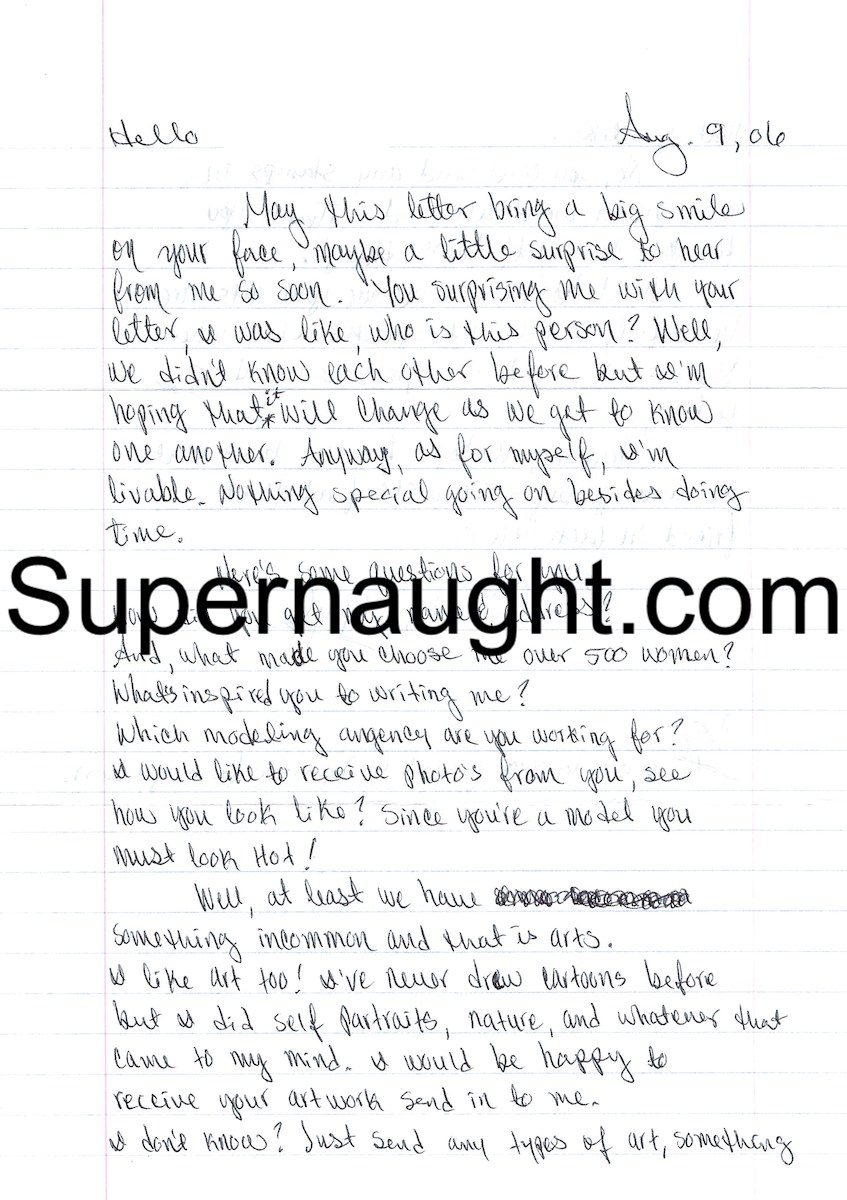 Hello Aug. 9, 06
May this letter bring a big smile
on your face, maybe a little surprise to hear
from me so soon. You surprising me with your
letter, I was like, who is this person? Well,
we didn't know each other before but I'm
hoping that it will change as we get to know
one another. Anyway, as for myself, I'm
livable. Nothing special going on besides doing
time.
Here's some questions for you
Supernaught.com
How did you get my name & address?
And, what made you choose me over 500 women?
What's inspired you to writing me?
Which modeling angency are you working for?
I would like to receive photo's from you, see
how you look like? Since you're a model you
must look Hot!
Well, at least we have
something incommon and that is arts.
I like art too! I've never draw cartoons before
but I did self partraits, nature, and whatever that
came to my mind. I would be happy to
receive your artwork send in to me.
I don't know? Just send any types of art, something